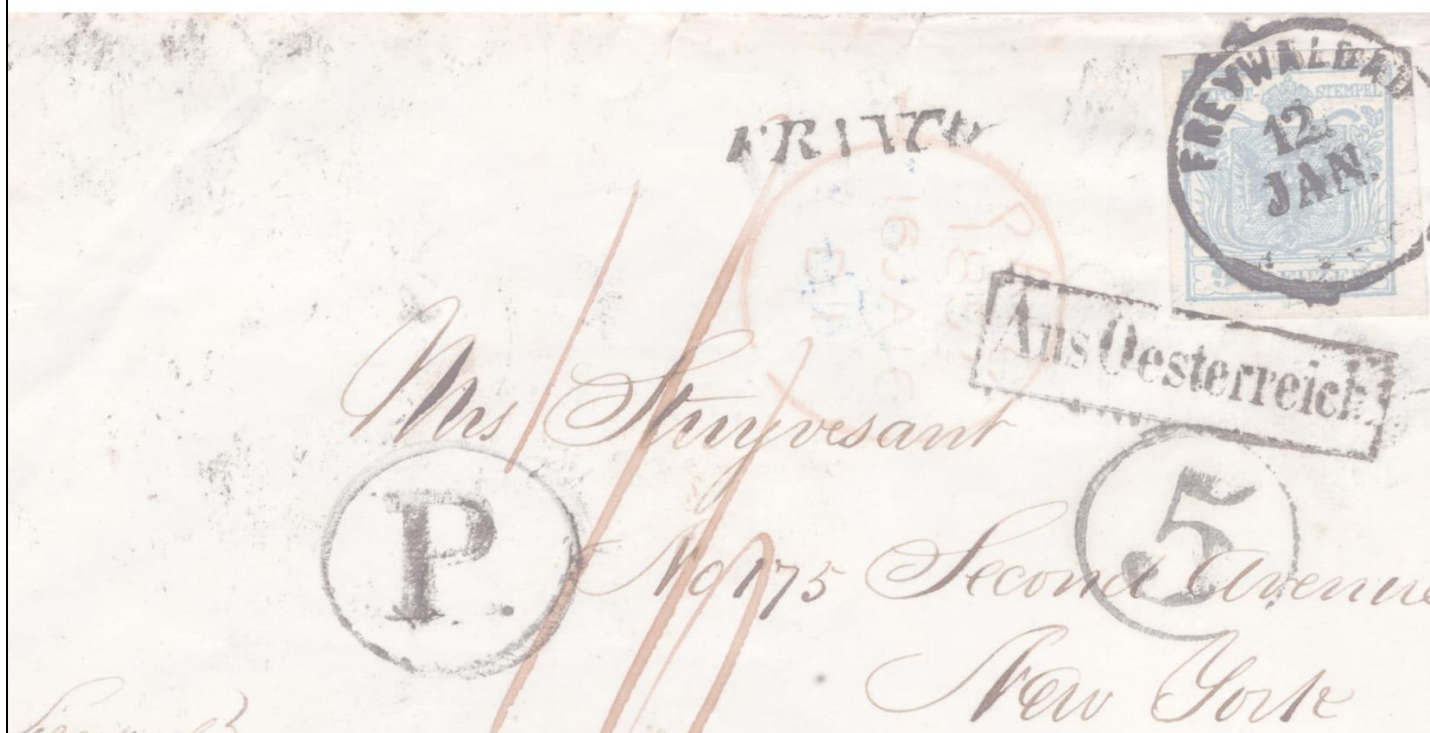 FREYWALDAU
POST-STEMPEL
12.
JAN.
FRANCO
16 JA
Aus Oesterreich
Mrs Stuyvesant
P.
5
No 175 Second Avenue
New York